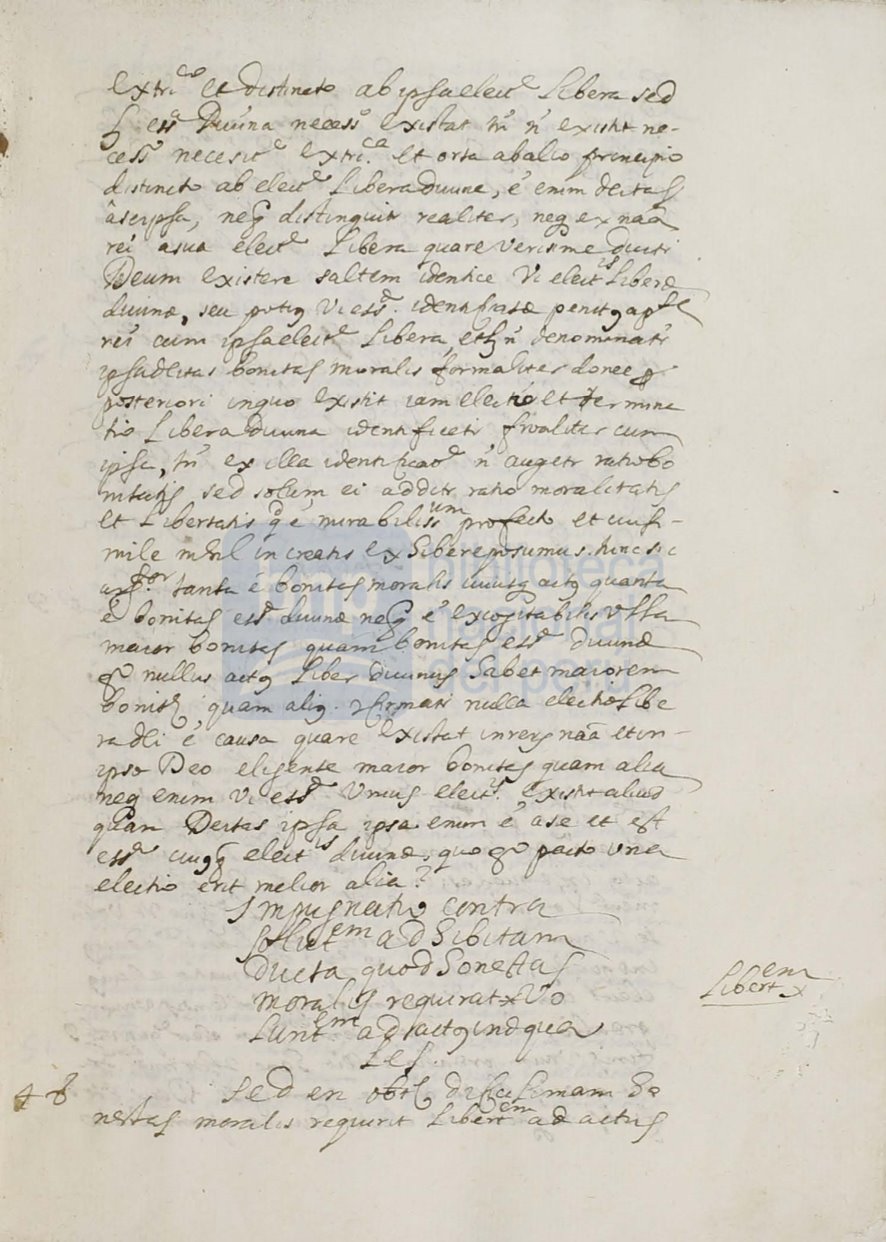 extri.ca et distincto ab ipsa elect.e Libera sed
ess.a Divina necess.o existat tn̄ n̄ existit ne-
cess.o necesit.e extri.ca et orta ab alio principio
distincto ab elect.e Libera divina, ē enim deitas
â se ipsa, neq distinguitr realiter, neq ex nāa
rei a sua elect.e Libera quare verisime dicitr
Deum existere saltem identice vi elect.is Liberæ
divinæ, seu potiq vi ess.æ identificatæ penitq a p.te
rei cum ipsa elect.e Libera, et n̄ denominatr
ipsa deitas bonitas moralis formaliter donec p
posteriori in quo existit iam electio et termina
tio Libera divina identificetr frmaliter cum
ipsa, tn̄ ex illa identificaō.e n̄ augetr ratio bo
nitatis sed solum ei additr ratio moralitatis
et Libertatis q ē mirabiliss.um profecto et cui si-
mile nihil in creatis exhibere possumus. hinc sic
arg.or tanta ē bonitas moralis cuiusq actq quanta
ē bonitas ess.æ divinæ neq ē excogitabilis ulla
maior bonitas quam bonitas ess.æ divinæ
go nullus actq Liber divinus habet maiorem
bonit.e quam aliq. cfirmatr nulla electio Libe
ra dei ē causa quare existat in rerum nāa et in
ipso Deo eligente maior bonitas quam alia
neq enim vi ess.æ unius elect.is existit aliud
quam Deitas ipsa ipsa enim ē a se et est
ess.a cuiqq elect.is divinæ, quo go pacto una
electio erit melior alia?
Impugnatio contra
solut.em adhibitam
ducta quod honestas
moralis requirat
Lunt.em ad actq inæqua
les.
48 Sed en obst. dificilimam ho
nestas moralis requirit Libert.em ad actus
Libert.em x